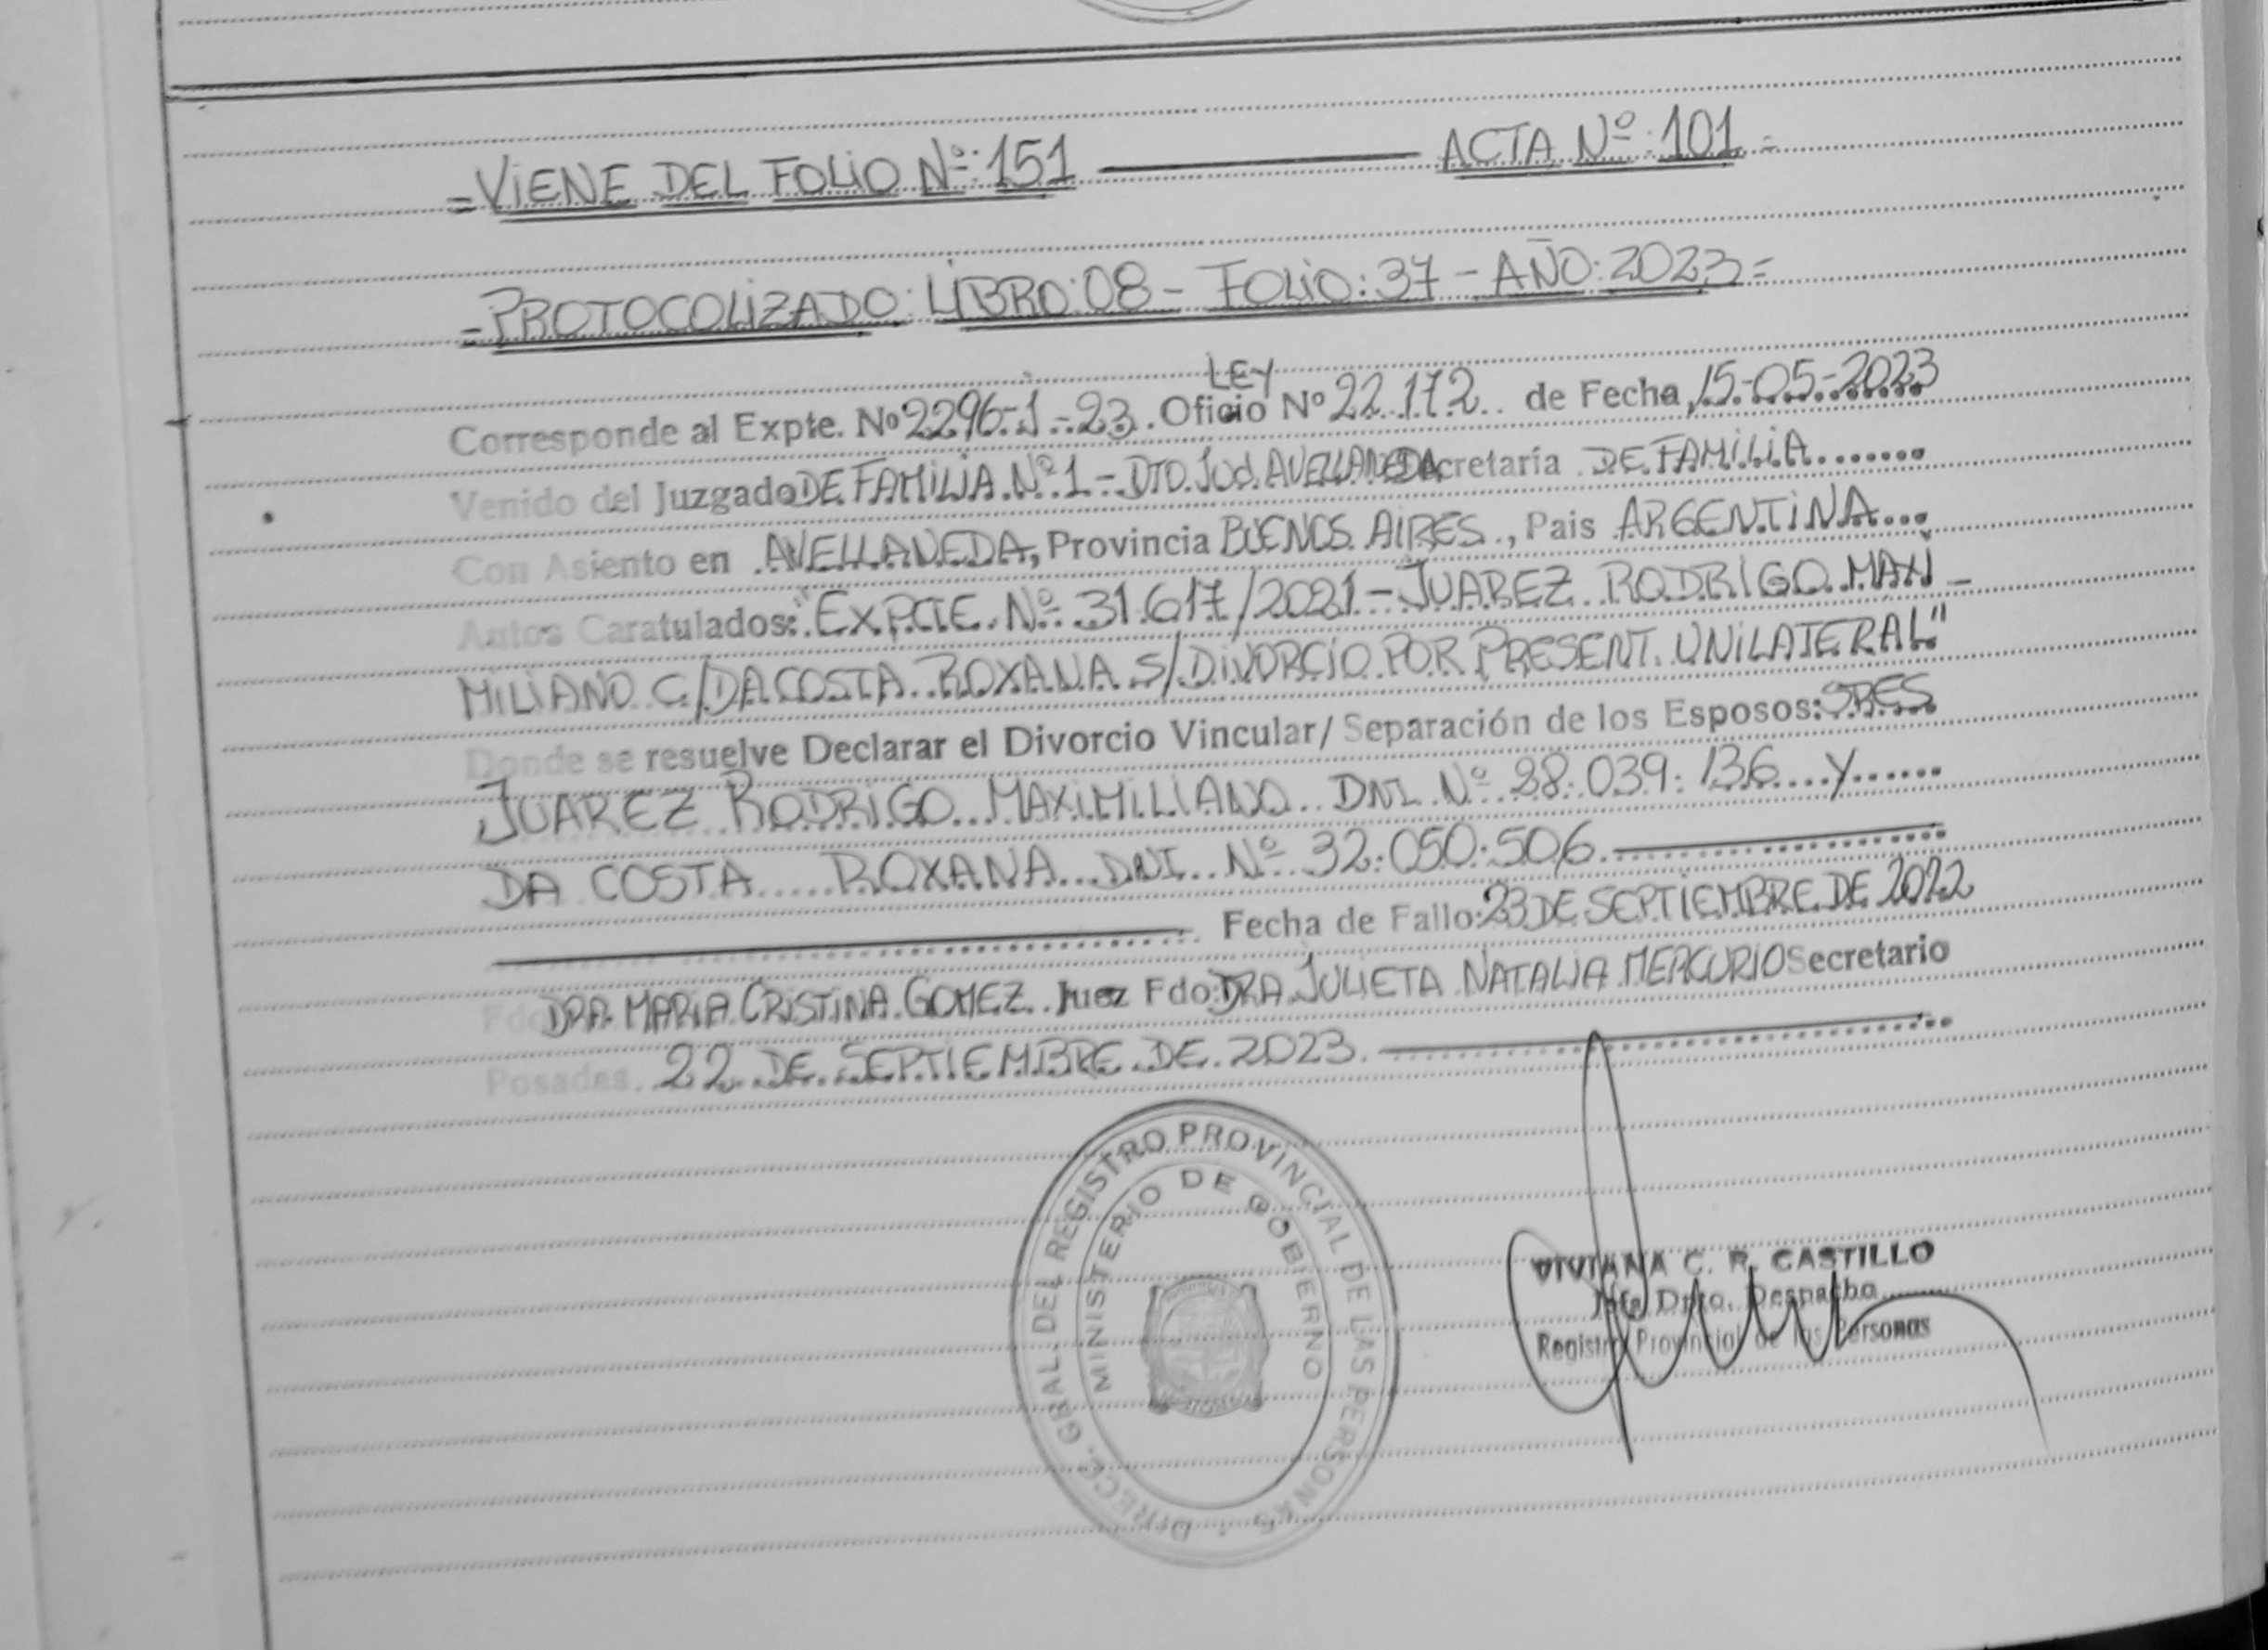 =VIENE DEL FOLIO Nº:151 ACTA Nº:101=
=PROTOCOLIZADO: LIBRO:08- FOLIO:37-AÑO:2023=
LEY
Corresponde al Expte. Nº 2296-J-23. Oficio Nº 22.172 de Fecha, 15-05-2023
Venido del Juzgado DE FAMILIA Nº1-DTO. JUD. AVELLANEDA cretaría DE FAMILIA.......
Con Asiento en AVELLANEDA, Provincia BUENOS AIRES, Pais ARGENTINA...
Autos Caratulados: "EXPTE. Nº 31.617/2021-JUAREZ RODRIGO MAXI_
MILIANO C/DA COSTA ROXANA S/DIVORCIO POR PRESENT. UNILATERAL"
Donde se resuelve Declarar el Divorcio Vincular/ Separación de los Esposos: SRES
JUAREZ RODRIGO MAXIMILIANO DNI Nº 38.039.136 Y......
DA COSTA ROXANA DNI Nº 32.050.506.
Fecha de Fallo: 23 DE SEPTIEMBRE DE 2022
Fdo DRA. MARIA CRISTINA GOMEZ Juez Fdo: DRA. JULIETA NATALIA MERCURIO Secretario
Posadas, 22 DE SEPTIEMBRE DE 2023.
DIRECC. GRAL. DEL REGISTRO PROVINCIAL DE LAS PERSONAS
MINISTERIO DE GOBIERNO
VIVIANA C. R. CASTILLO
Jefe Dpto. Despacho
Registro Provincial de las Personas